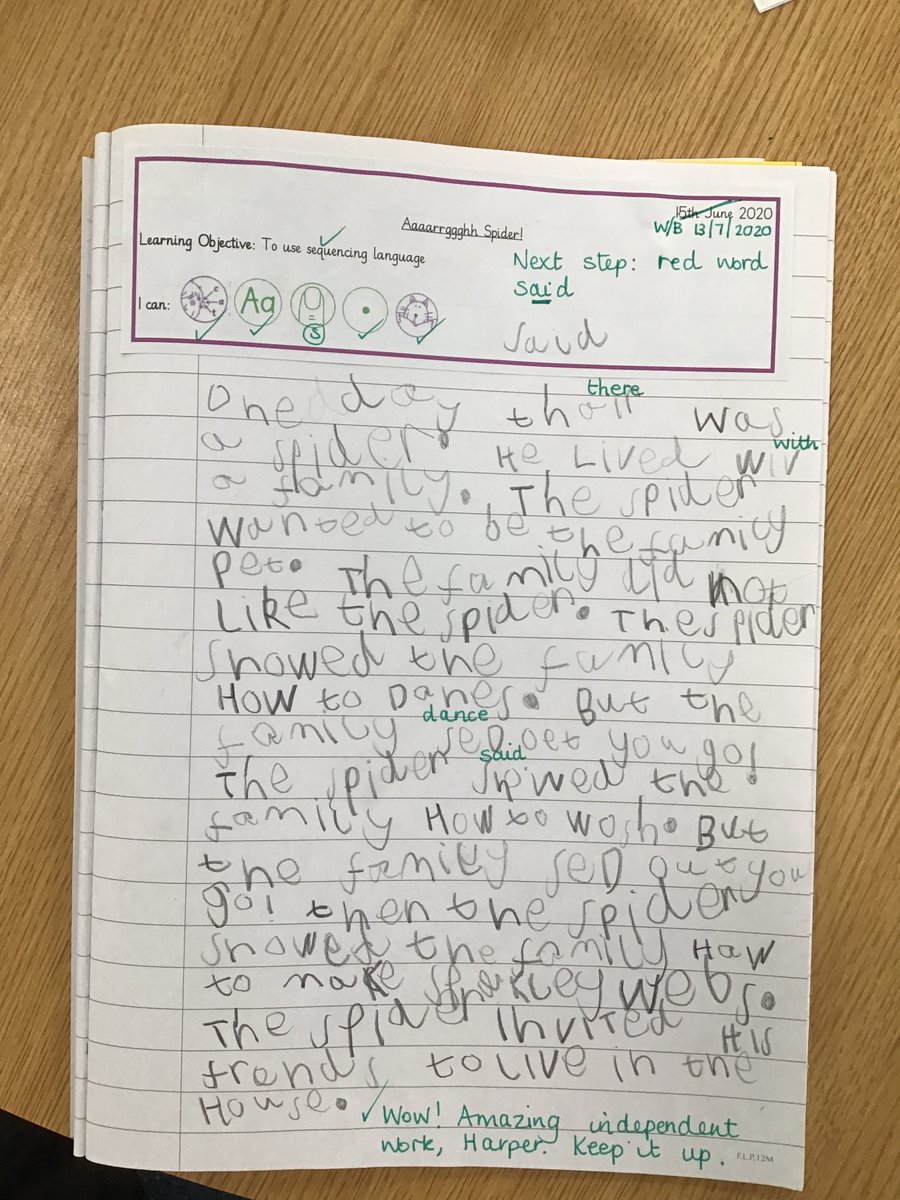 15th June 2020
W/B 13/7/2020
Aaaarrggghh Spider!
Learning Objective: To use sequencing language
Next step: red word
said
I can:
c
a
t
Aa
S
said
there
One day thall was
a spider. He Lived wiv
with
a family. The spider
wanted to be the family
Pet. The family did not
Like the spider. The spider
showed the family
How to Danes. But the
dance
family sed oet you go!
said
The spider showed the
family How to wosh. But
the family seD out you
go! then the spider
showed the family Haw
to make sparkley webs.
The spider invited His
frends to Live in the
House.
Wow! Amazing independent
work, Harper. Keep it up.
F.L.P.12M